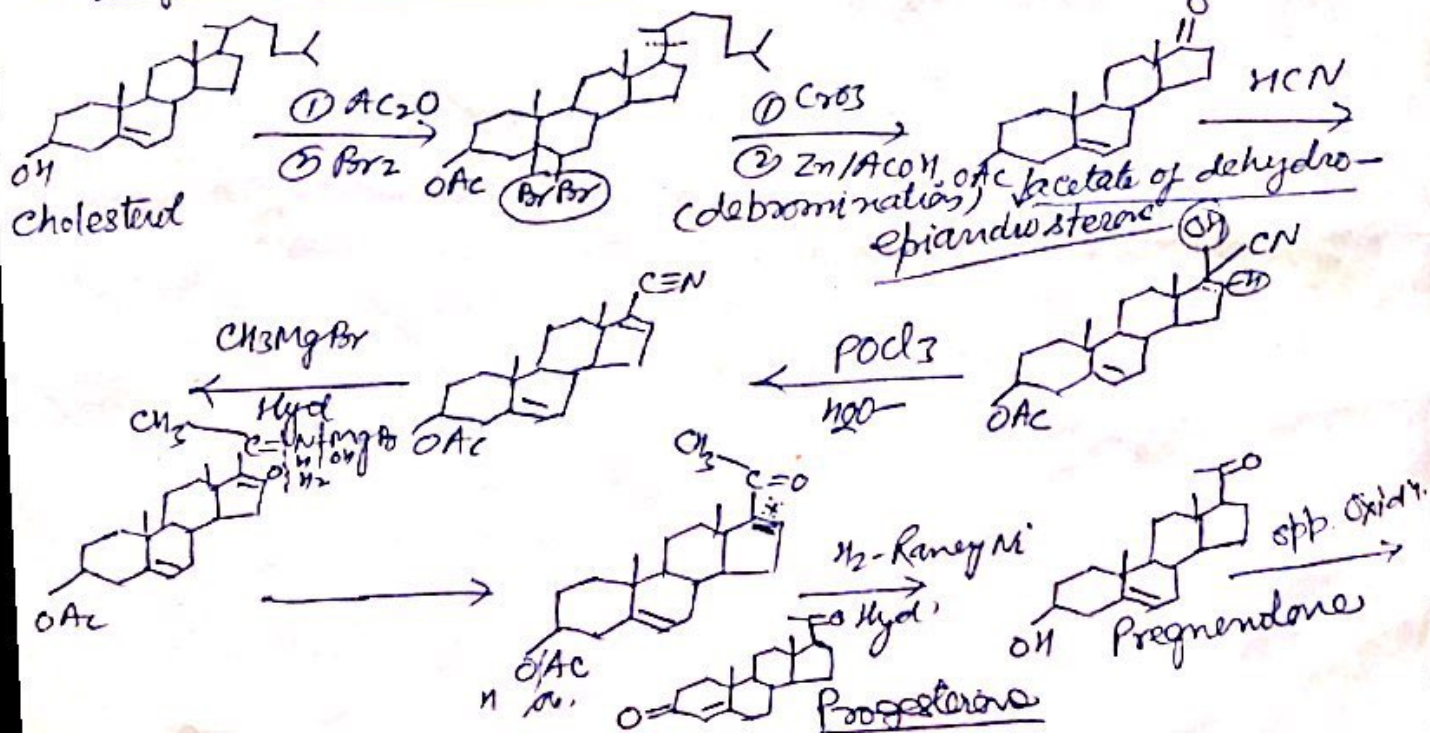 ① AC2O
② Br2
OH
Cholesterol
OAc
Br Br
① CrO3
② Zn/AcOH
(debromination)
O
OAc
acetate of dehydro-
epiandrosterone
HCN
OH
CN
H
OAc
POCl3
C≡N
OAc
CH3MgBr
Hyd
CH3
C=N MgBr
OH
H2
OAc
CH3
C=O
O/Ac
H
H2-Raney Ni
Hyd'
O
OH
Pregnenolone
opp. Oxidn.
O
O=
Progesterone